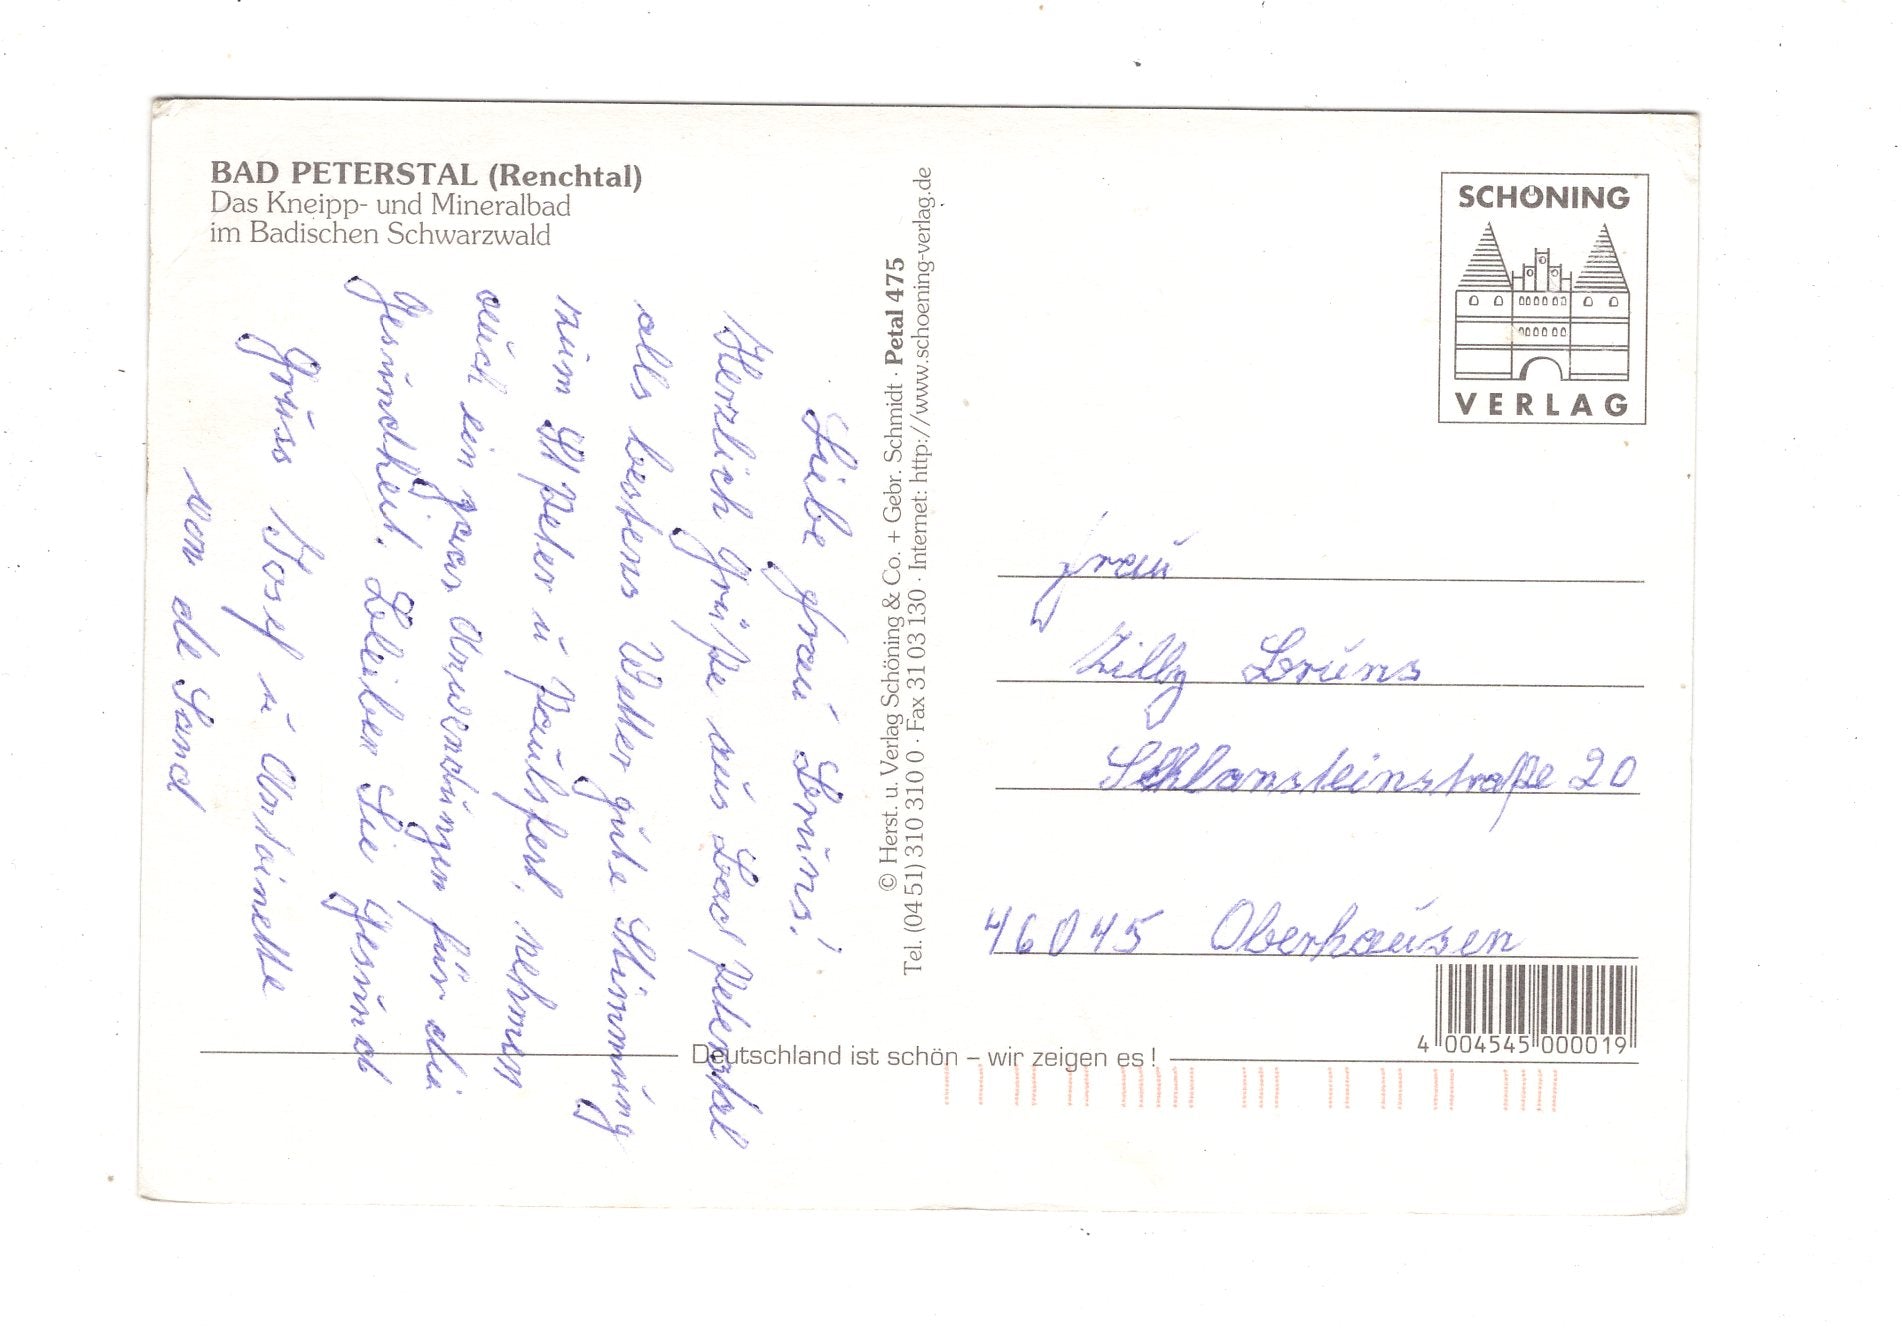 BAD PETERSTAL (Renchtal)
Das Kneipp- und Mineralbad
im Badischen Schwarzwald
Liebe Frau Bruns!
Herzlich Grüße aus Bad Peterstal
alls bestens Wetter gute Stimmung
zum St Peter u Paulsfest. nehmen
auch ein paar Anwendungen für die
Gesundheit. Bleiben Sie Gesund
Gruss Josef u Antoinette
van de Sand
© Herst. u. Verlag Schöning & Co. + Gebr. Schmidt · Petal 475
Tel. (04 51) 3 10 31 0 0 · Fax 31 03 130 · Internet: http://www.schoening-verlag.de
SCHÖNING
VERLAG
Frau
Zilly Bruns
46045 Oberhausen
4 004545 000019
Deutschland ist schön – wir zeigen es !